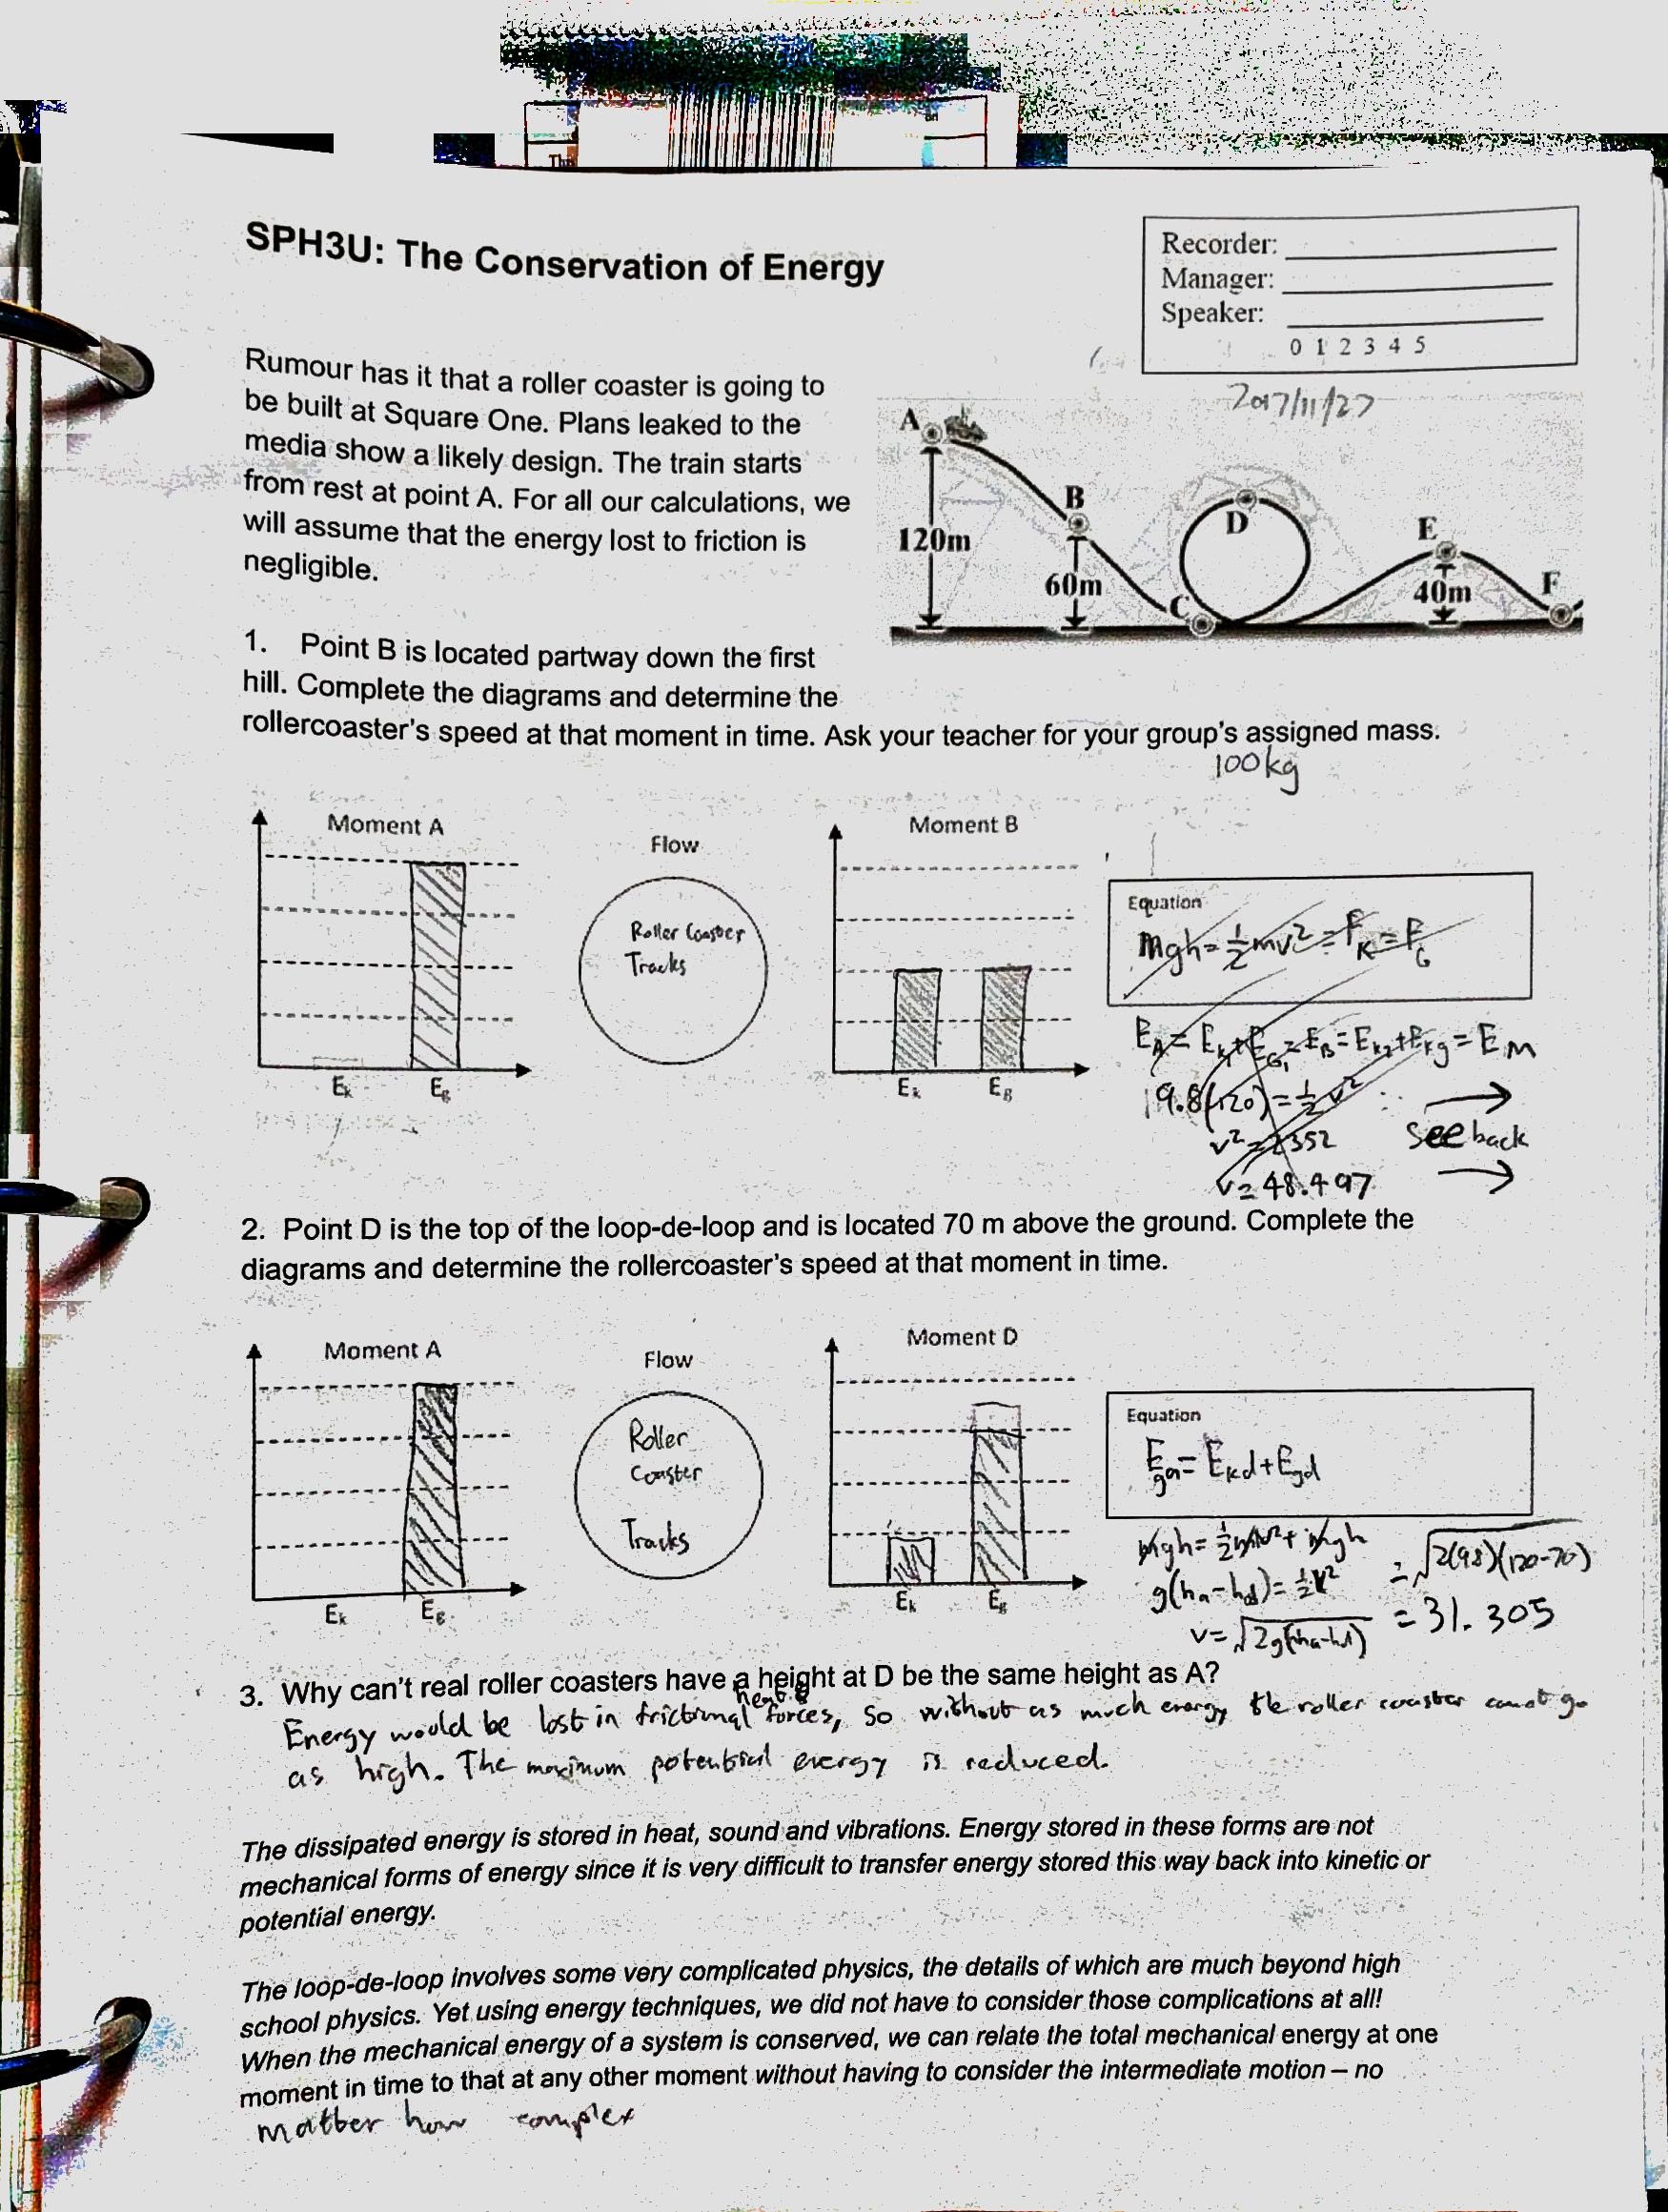 SPH3U: The Conservation of Energy
Recorder:
Manager:
Speaker:
0 1 2 3 4 5
2017/11/27
Rumour has it that a roller coaster is going to
be built at Square One. Plans leaked to the
media show a likely design. The train starts
from rest at point A. For all our calculations, we
will assume that the energy lost to friction is
negligible.
A
B
D
E
120m
60m
C
40m
F
1. Point B is located partway down the first
hill. Complete the diagrams and determine the
rollercoaster's speed at that moment in time. Ask your teacher for your group's assigned mass.
100kg
Moment A
Flow
Moment B
Roller Coaster
Tracks
Ek Eg
Ek Eg
Equation
mgh = ½mv² = Fk = FG
EA = Ek + EG1 = EB = Ek2 + Ekg = EM
9.8(120) = ½v²
v² = 2352
v = 48.497
See back
2. Point D is the top of the loop-de-loop and is located 70 m above the ground. Complete the
diagrams and determine the rollercoaster's speed at that moment in time.
Moment A
Flow
Moment D
Roller
Coaster
Tracks
Ek Eg
Ek Eg
Equation
Ega = Ekd + Egd
mgh = ½mv² + mgh
g(ha - hd) = ½v²
v = √2g(ha-hd)
= √2(9.8)(120-70)
= 31.305
3. Why can't real roller coasters have a height at D be the same height as A?
heat &
Energy would be lost in frictional forces, so without as much energy the roller coaster cannot go
as high. The maximum potential energy is reduced.
The dissipated energy is stored in heat, sound and vibrations. Energy stored in these forms are not
mechanical forms of energy since it is very difficult to transfer energy stored this way back into kinetic or
potential energy.
The loop-de-loop involves some very complicated physics, the details of which are much beyond high
school physics. Yet using energy techniques, we did not have to consider those complications at all!
When the mechanical energy of a system is conserved, we can relate the total mechanical energy at one
moment in time to that at any other moment without having to consider the intermediate motion – no
matter how complex